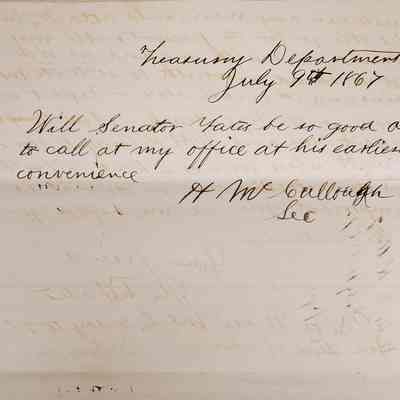 Treasury Department
July 9th 1867
Will Senator Yates be so good a
to call at my office at his earlies
convenience
H McCullough
Sec